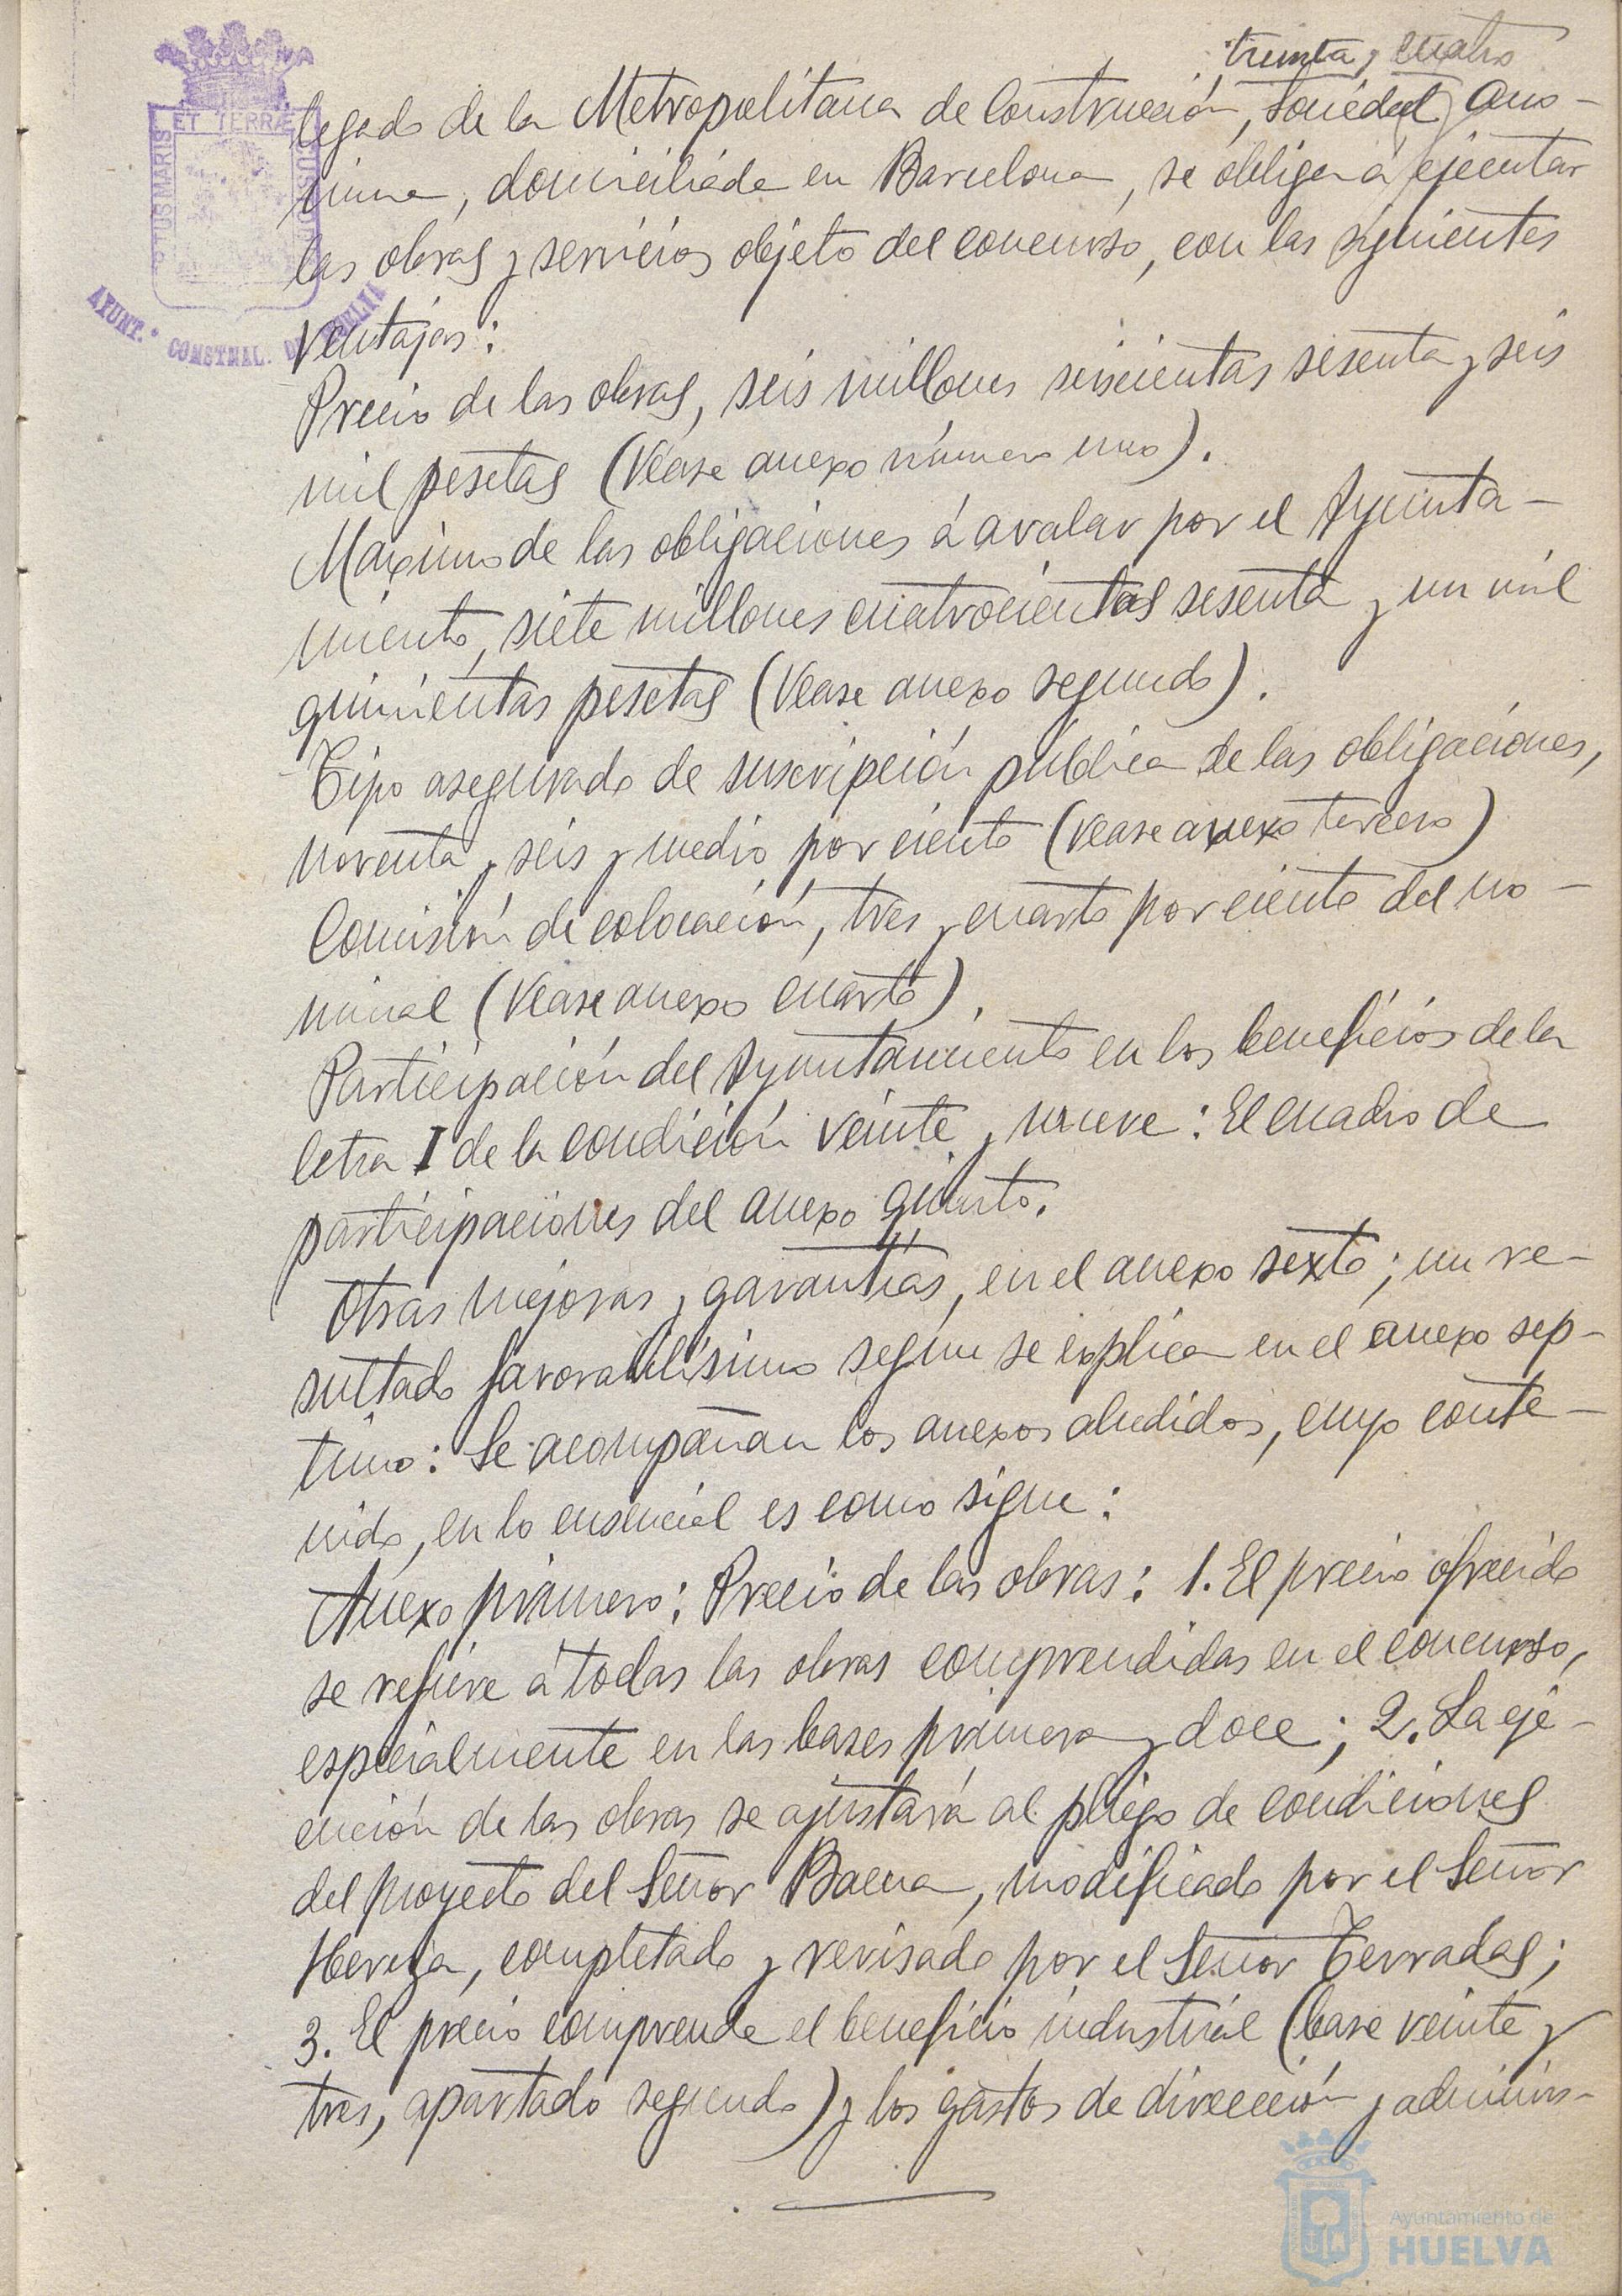 treinta y cuatro
legado de la Metropolitana de Construcción, Sociedad Anó-
nima, domiciliada en Barcelona, se obliga á ejecutar
las obras y servicios objeto del concurso, con las siguientes
ventajas:
Precio de las obras, seis millones seiscientas sesenta y seis
mil pesetas (Véase anexo número uno).
Maximo de las obligaciones á avalar por el Ayunta-
miento, siete millones cuatrocientas sesenta y un mil
quinientas pesetas (Vease anexo segundo).
Tipo asegurado de suscripción pública de las obligaciones,
noventa y seis y medio por ciento (vease anexo tercero)
Comisión de colocación, tres y cuarto por ciento del no-
minal (Vease anexo cuarto).
Participación del Ayuntamiento en los beneficios de la
letra I de la condición veinte y nueve: El cuadro de
participaciones del anexo quinto.
Otras mejoras y garantías, en el anexo sexto; un re-
sultado favorabilísimo según se explica en el anexo sép-
timo: Se acompañan los anexos aludidos, cuyo conte-
nido, en lo esencial es como sigue:
Anexo primero: Precio de las obras: 1. El precio ofrecido
se refiere á todas las obras comprendidas en el concurso,
especialmente en las bases primera y doce; 2. La eje-
cución de las obras se ajustará al pliego de condiciones
del proyecto del Señor Baena, modificado por el Señor
completado y revisado por el Señor Terradas;
3. El precio comprende el beneficio industrial (base veinte y
tres, apartado segundo) y los gastos de dirección y adminis-
ET TERRÆ
PORTUS MARIS
CUSTODIA
AYUNT.º CONSTNAL. DE HUELVA
Ayuntamiento de
HUELVA